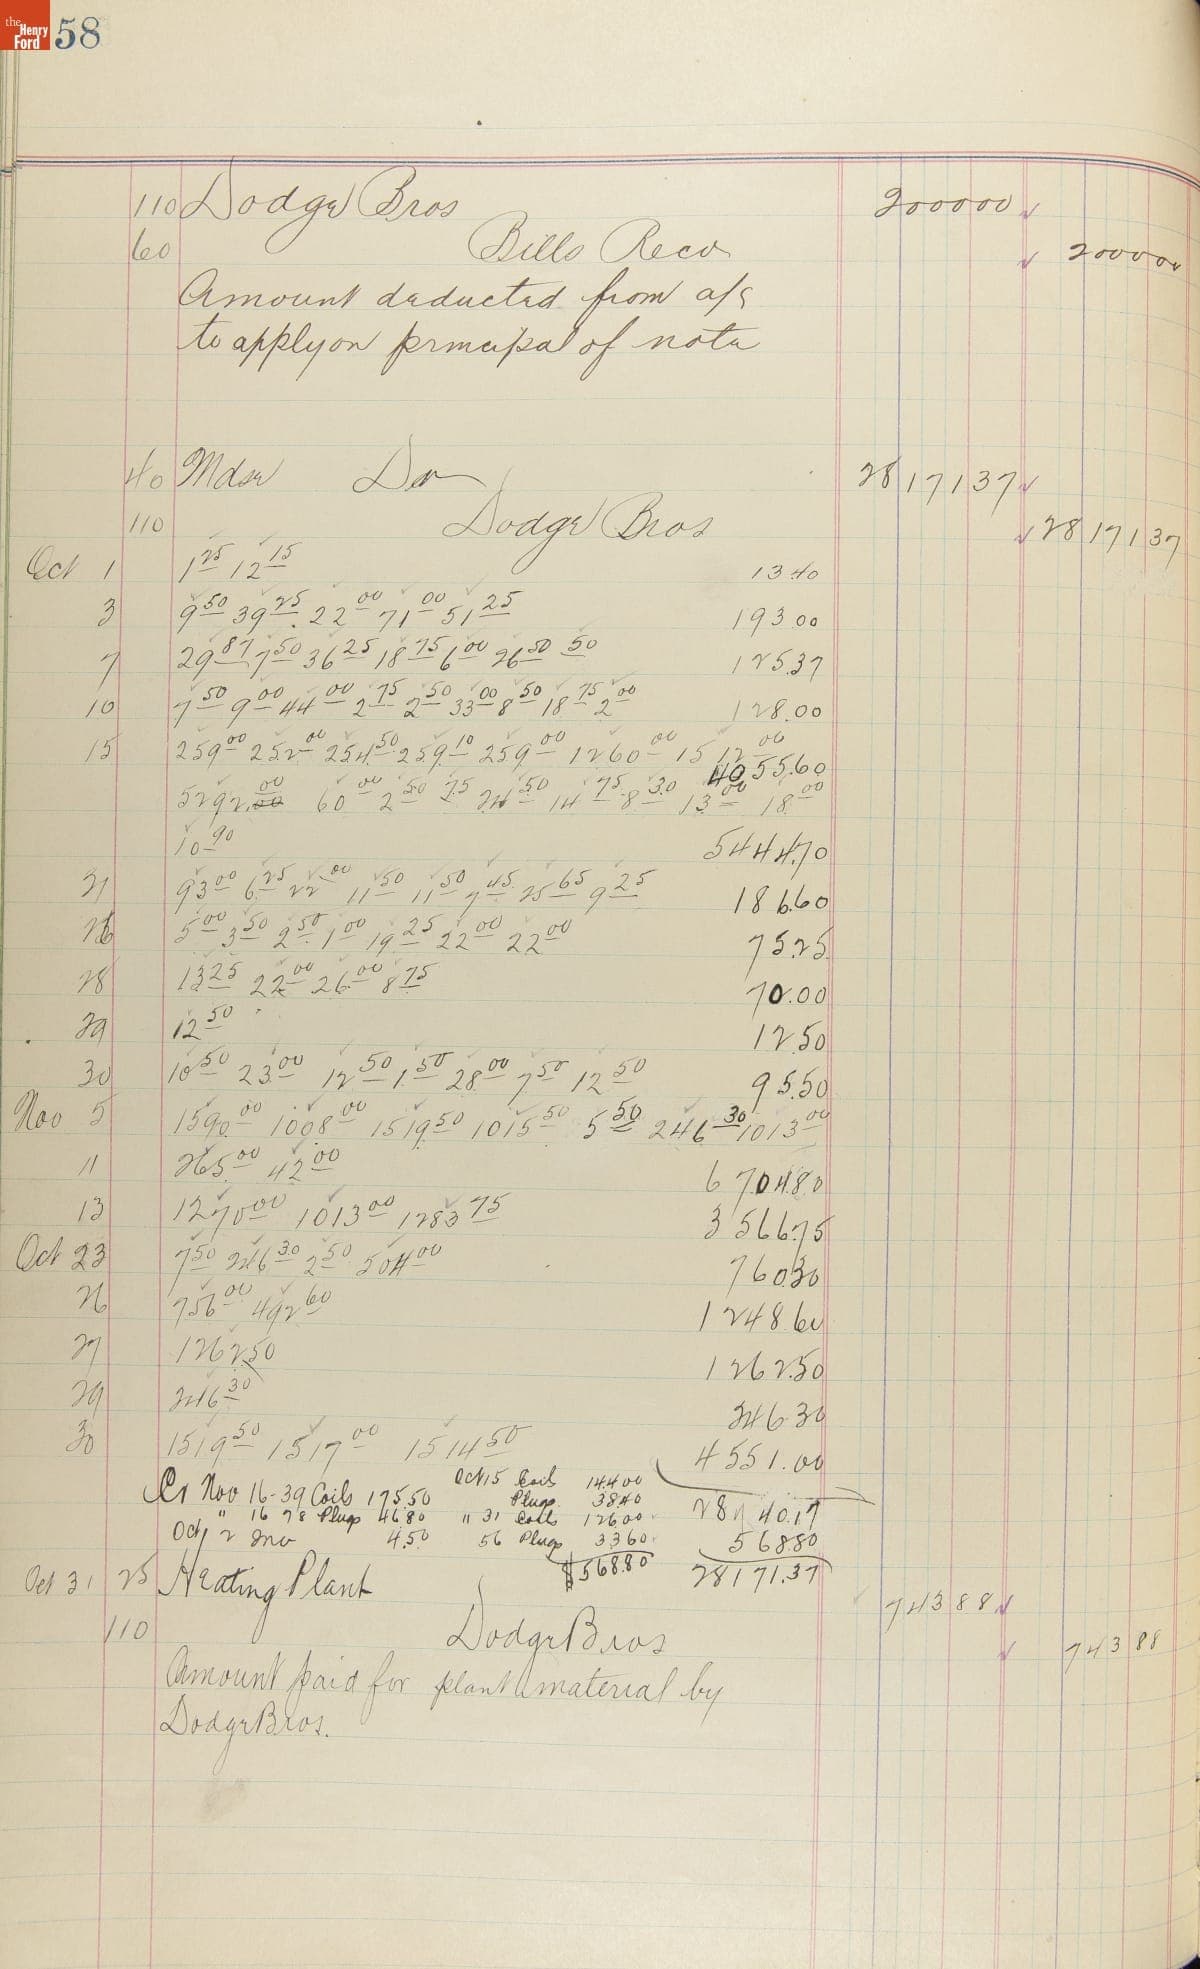 the Henry Ford
58
110 Dodge Bros 200000
60 Bills Recv 200000
Amount deducted from a/c
to apply on principal of note
40 Mdse Dr 2817137
110 Dodge Bros 2817137
Oct 1 1 25 12 15 13.40
3 9 50 39 25 22 00 71 00 51 25 193.00
7 29 87 7 50 36 25 18 75 6 00 26 50 50 125.37
10 7 50 9 00 44 00 2 75 2 50 33 00 8 50 18 75 2 00 128.00
15 259 00 252 00 254 50 259 10 259 00 1260 00 1512 00
4055.60
5292.00 60 00 2 50 75 24 50 14 75 8 30 13 00 18 00
10 90 5444.70
21 93 00 6 25 22 00 11 50 11 50 7 45 25 65 9 25 186.60
26 5 00 3 50 2 50 1 00 19 25 22 00 22 00 75.25
28 13 25 22 00 26 00 8 75 70.00
29 12 50 12.50
30 10 50 23 00 12 50 1 50 28 00 7 50 12 50 95.50
Nov 5 1590 00 1008 00 1519 50 1015 50 5 50 246 30 1013 00
11 265 00 42 00 6704.80
13 1270 00 1013 00 1283 75 3566.75
Oct 23 7 50 246 30 2 50 504 00 760.30
26 756 00 492 60 1248.60
27 1262.50 1262.50
29 246 30 246.30
30 1519 50 1517 00 1514 50 4551.00
Oct 15 Coils 144.00
Cr Nov 16-39 Coils 175.50 Plugs 38.40 28740.17
" 16 78 Plugs 46.80 " 31 Coils 126.00
Oct 2 4.50 56 Plugs 33.60 568.80
$568.80 28171.37
Oct 31 25 Heating Plant 74388
110 Dodge Bros 74388
Amount paid for plant material by
Dodge Bros.